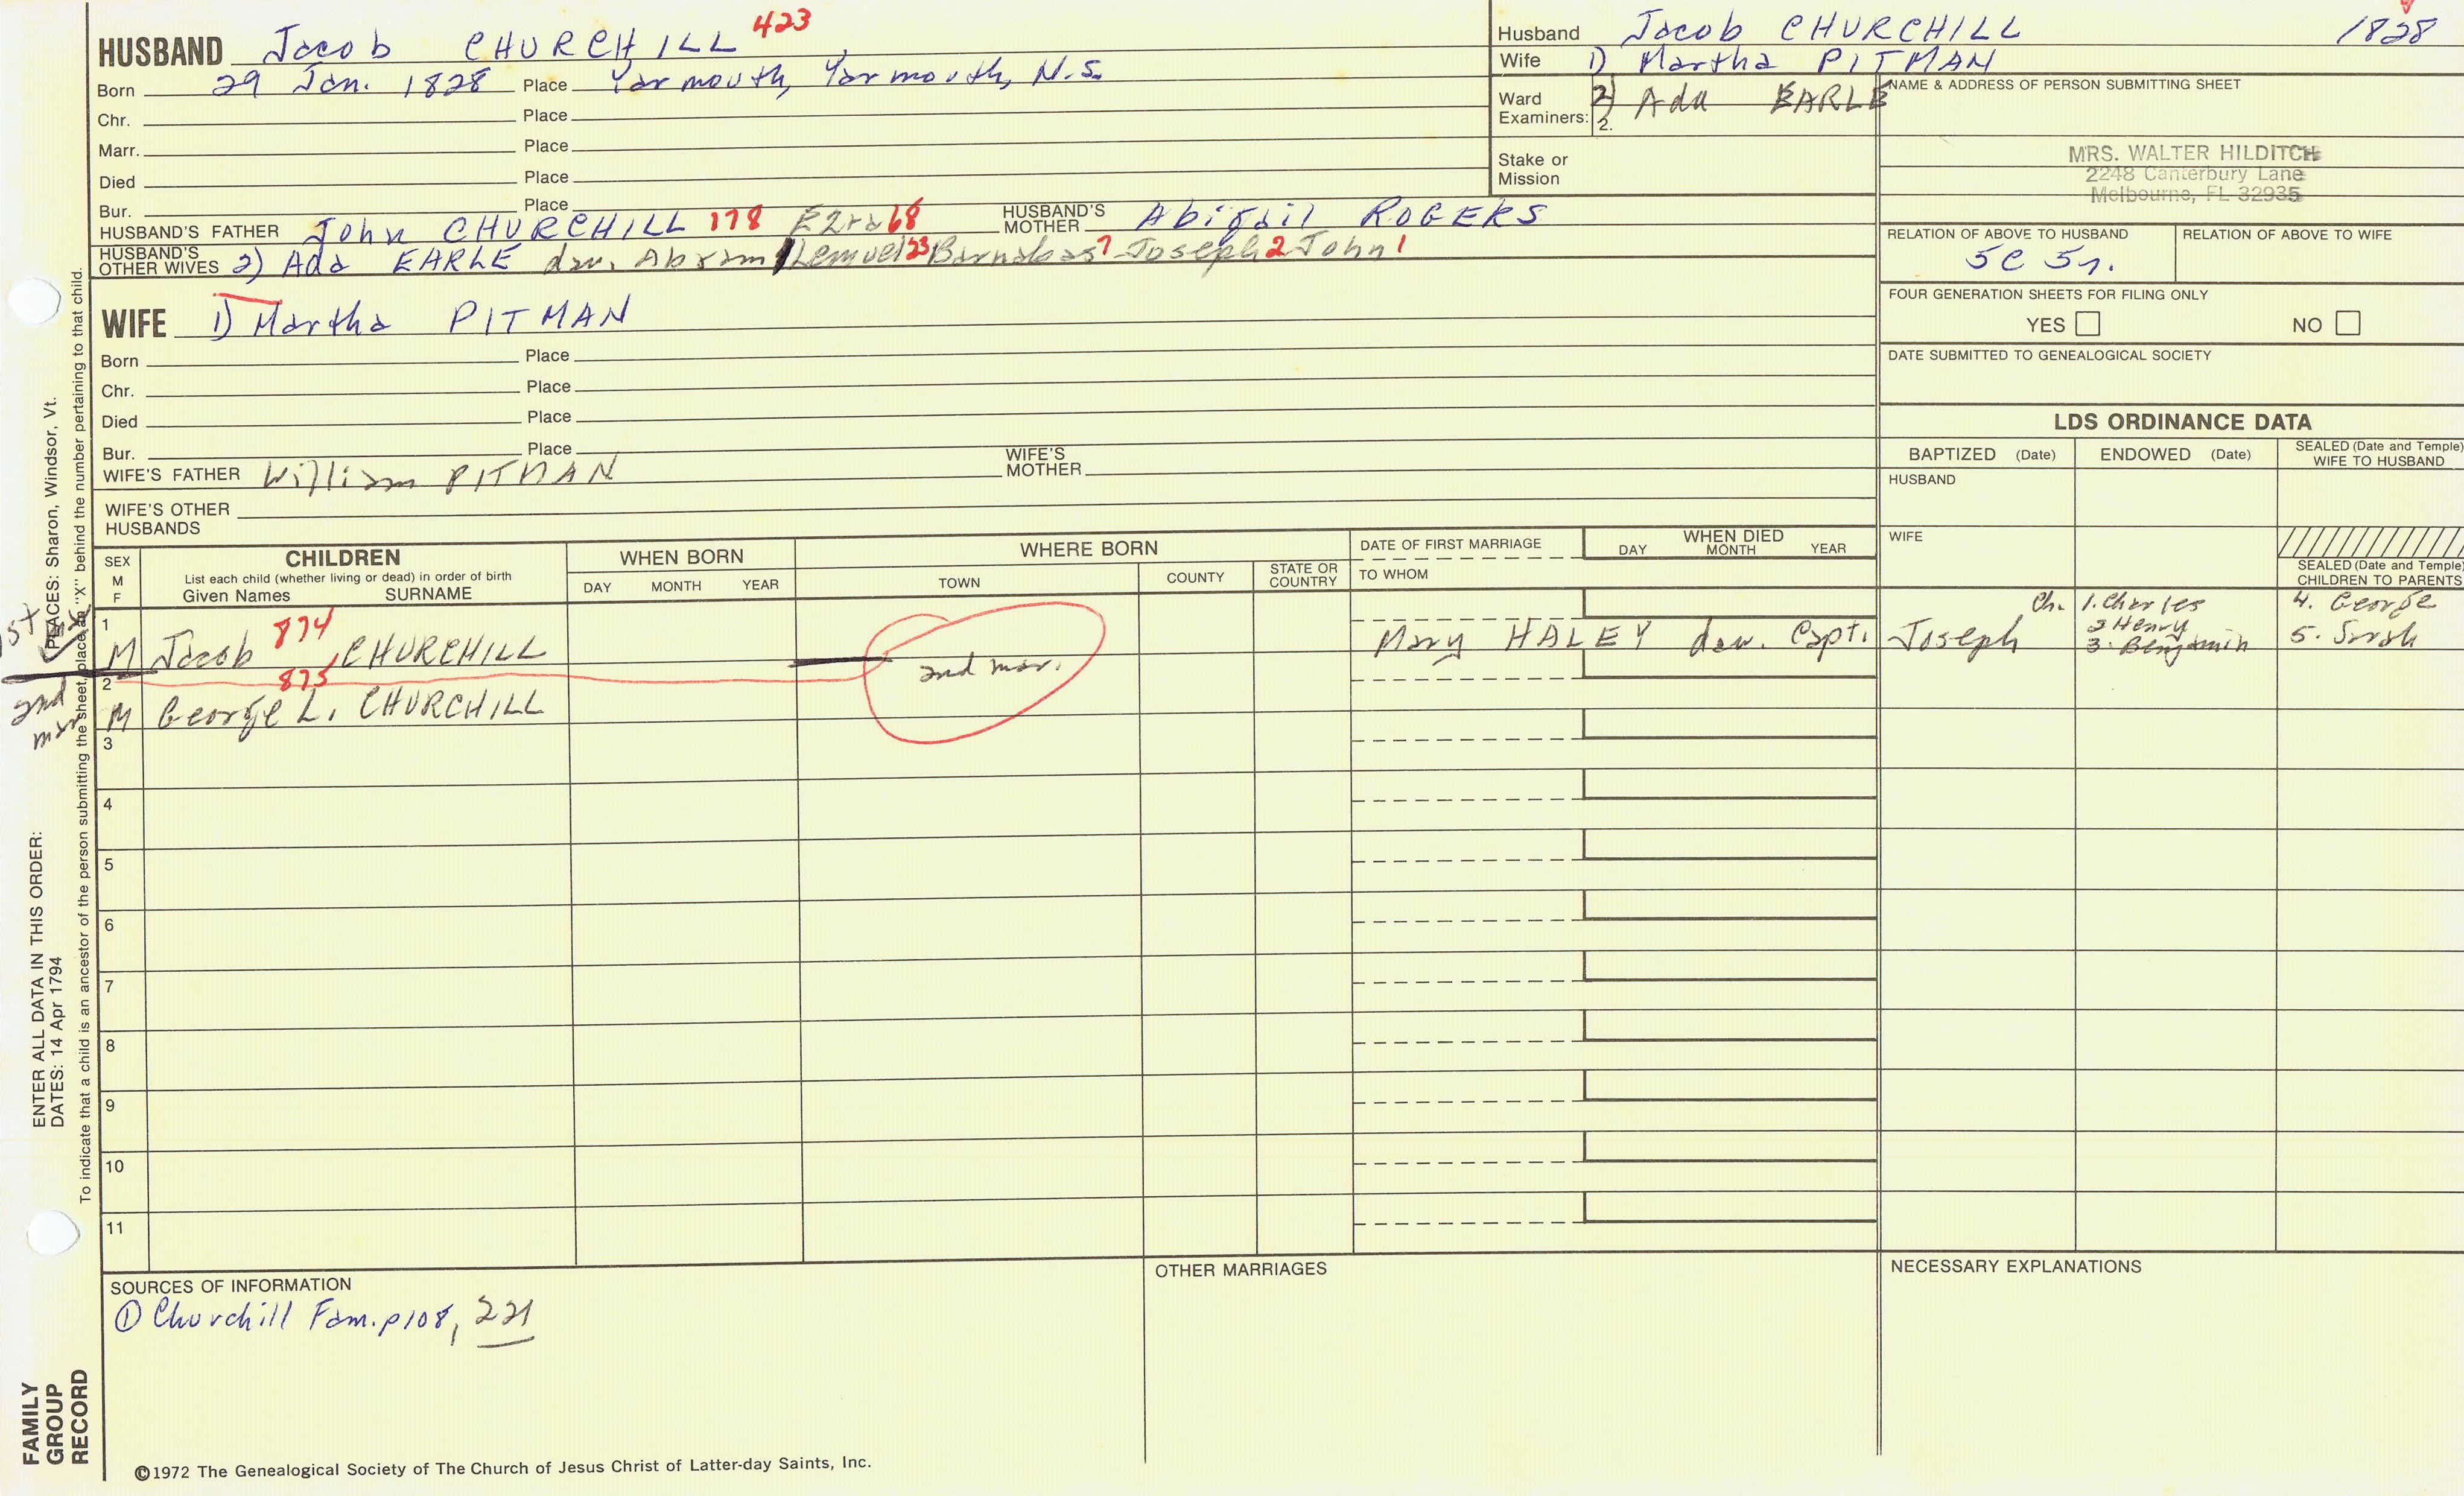 HUSBAND Jacob CHURCHILL 423
Born 29 Jan. 1828 Place Yarmouth, Yarmouth, N.S.
Chr. Place
Marr. Place
Died Place
Bur. Place
HUSBAND'S FATHER John CHURCHILL 178 Ezra 68 HUSBAND'S MOTHER Abigail ROGERS
HUSBAND'S OTHER WIVES 2) Ada EARLE dau. Abram Lemuel 23 Barnabas 7 Joseph 2 John 1
Husband Jacob CHURCHILL 1828
Wife 1) Martha PITMAN
Ward 2) Ada EARLE
Examiners: 2.
Stake or
Mission
NAME & ADDRESS OF PERSON SUBMITTING SHEET
MRS. WALTER HILDITCH
2248 Canterbury Lane
Melbourne, FL 32935
RELATION OF ABOVE TO HUSBAND RELATION OF ABOVE TO WIFE
5C 5r.
FOUR GENERATION SHEETS FOR FILING ONLY
YES NO
DATE SUBMITTED TO GENEALOGICAL SOCIETY
WIFE 1) Martha PITMAN
Born Place
Chr. Place
Died Place
Bur. Place
WIFE'S FATHER William PITMAN WIFE'S MOTHER
WIFE'S OTHER
HUSBANDS
LDS ORDINANCE DATA
BAPTIZED (Date) ENDOWED (Date) SEALED (Date and Temple) WIFE TO HUSBAND
HUSBAND
WIFE
SEALED (Date and Temple)
CHILDREN TO PARENTS
SEX
M
F
CHILDREN
List each child (whether living or dead) in order of birth
Given Names SURNAME
WHEN BORN
DAY MONTH YEAR
WHERE BORN
TOWN COUNTY STATE OR COUNTRY
DATE OF FIRST MARRIAGE
TO WHOM
WHEN DIED
DAY MONTH YEAR
1st
1
M Jacob 874 CHURCHILL Mary HALEY dau. Capt. Joseph
Ch. 1. Charles 4. George
2 Henry 5. Sarah
3. Benjamin
2nd mar.
2
M George L. 875 CHURCHILL
2nd mar.
3
4
5
6
7
8
9
10
11
SOURCES OF INFORMATION
① Churchill Fam. p108, 221
OTHER MARRIAGES
NECESSARY EXPLANATIONS
©1972 The Genealogical Society of The Church of Jesus Christ of Latter-day Saints, Inc.
FAMILY
GROUP
RECORD
ENTER ALL DATA IN THIS ORDER:
DATES: 14 Apr 1794 PLACES: Sharon, Windsor, Vt.
To indicate that a child is an ancestor of the person submitting the sheet, place an "X" behind the number pertaining to that child.